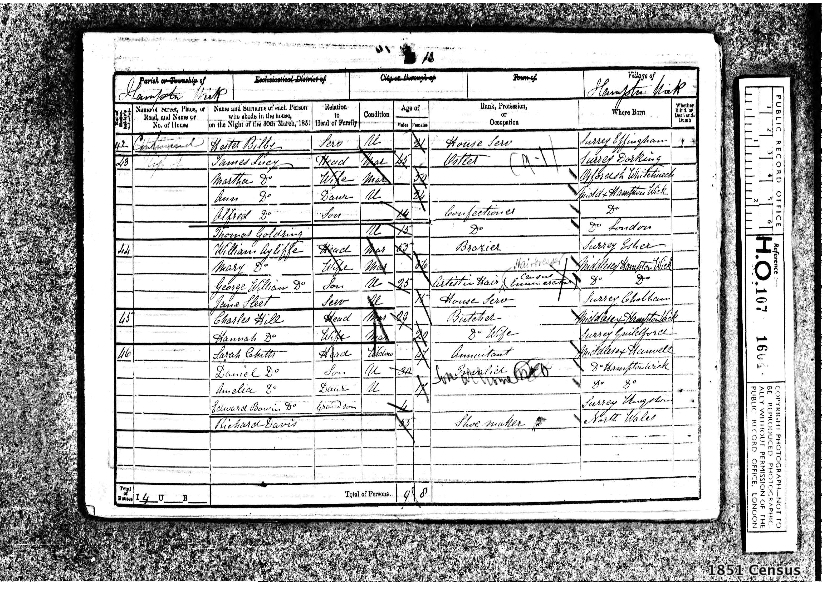 12
Parish or Township of Ecclesiastical District of City or Borough of Town of Village of
Hampton Wick Hampton Wick
Name of Street, Place, or Road, and Name or No. of House
Name and Surname of each Person who abode in the house, on the Night of the 30th March, 1851
Relation to Head of Family
Condition
Age of
Males Females
Rank, Profession, or Occupation
Where Born
Whether Blind, or Deaf-and-Dumb
42 Continued Hester Bilby Serv U House Serv Surrey Effingham
43 James Lucy Head Mar 45 Surrey Dorking
Martha Do Wife Mar
Ann Do Daur U 24 Middx Hampton Wick
Alfred Do Son 14 Confectioner Do
Thomas Goldring U 15 Do Do London
44 William Ayliffe Head Mar Brazier Surrey Esher
Mary Do Wife Mar Middlesex Hampton Wick
George William Do Son U 25 Artist in Hair & Census Enumerator Do Do
Jane Fleet Serv U House Serv Surrey Chobham
45 Charles Hill Head Mar 29 Butcher Middlesex Hampton Wick
Hannah Do Wife Mar Do Wife Surrey Guildford
46 Sarah Head Widow Annuitant Middlesex Hanwell
Daniel Do Son U Do Hampton Wick
Amelia Do Daur U Do Do
Edward Do Grandson Surrey Kingston
Richard Davis 35 Shoe maker North Wales
Total of Houses I 4 U B Total of Persons 9 8
PUBLIC RECORD OFFICE
Reference :-
H.O. 107
COPYRIGHT PHOTOGRAPH—NOT TO BE REPRODUCED PHOTOGRAPHICALLY WITHOUT PERMISSION OF THE PUBLIC RECORD OFFICE, LONDON
1851 Census